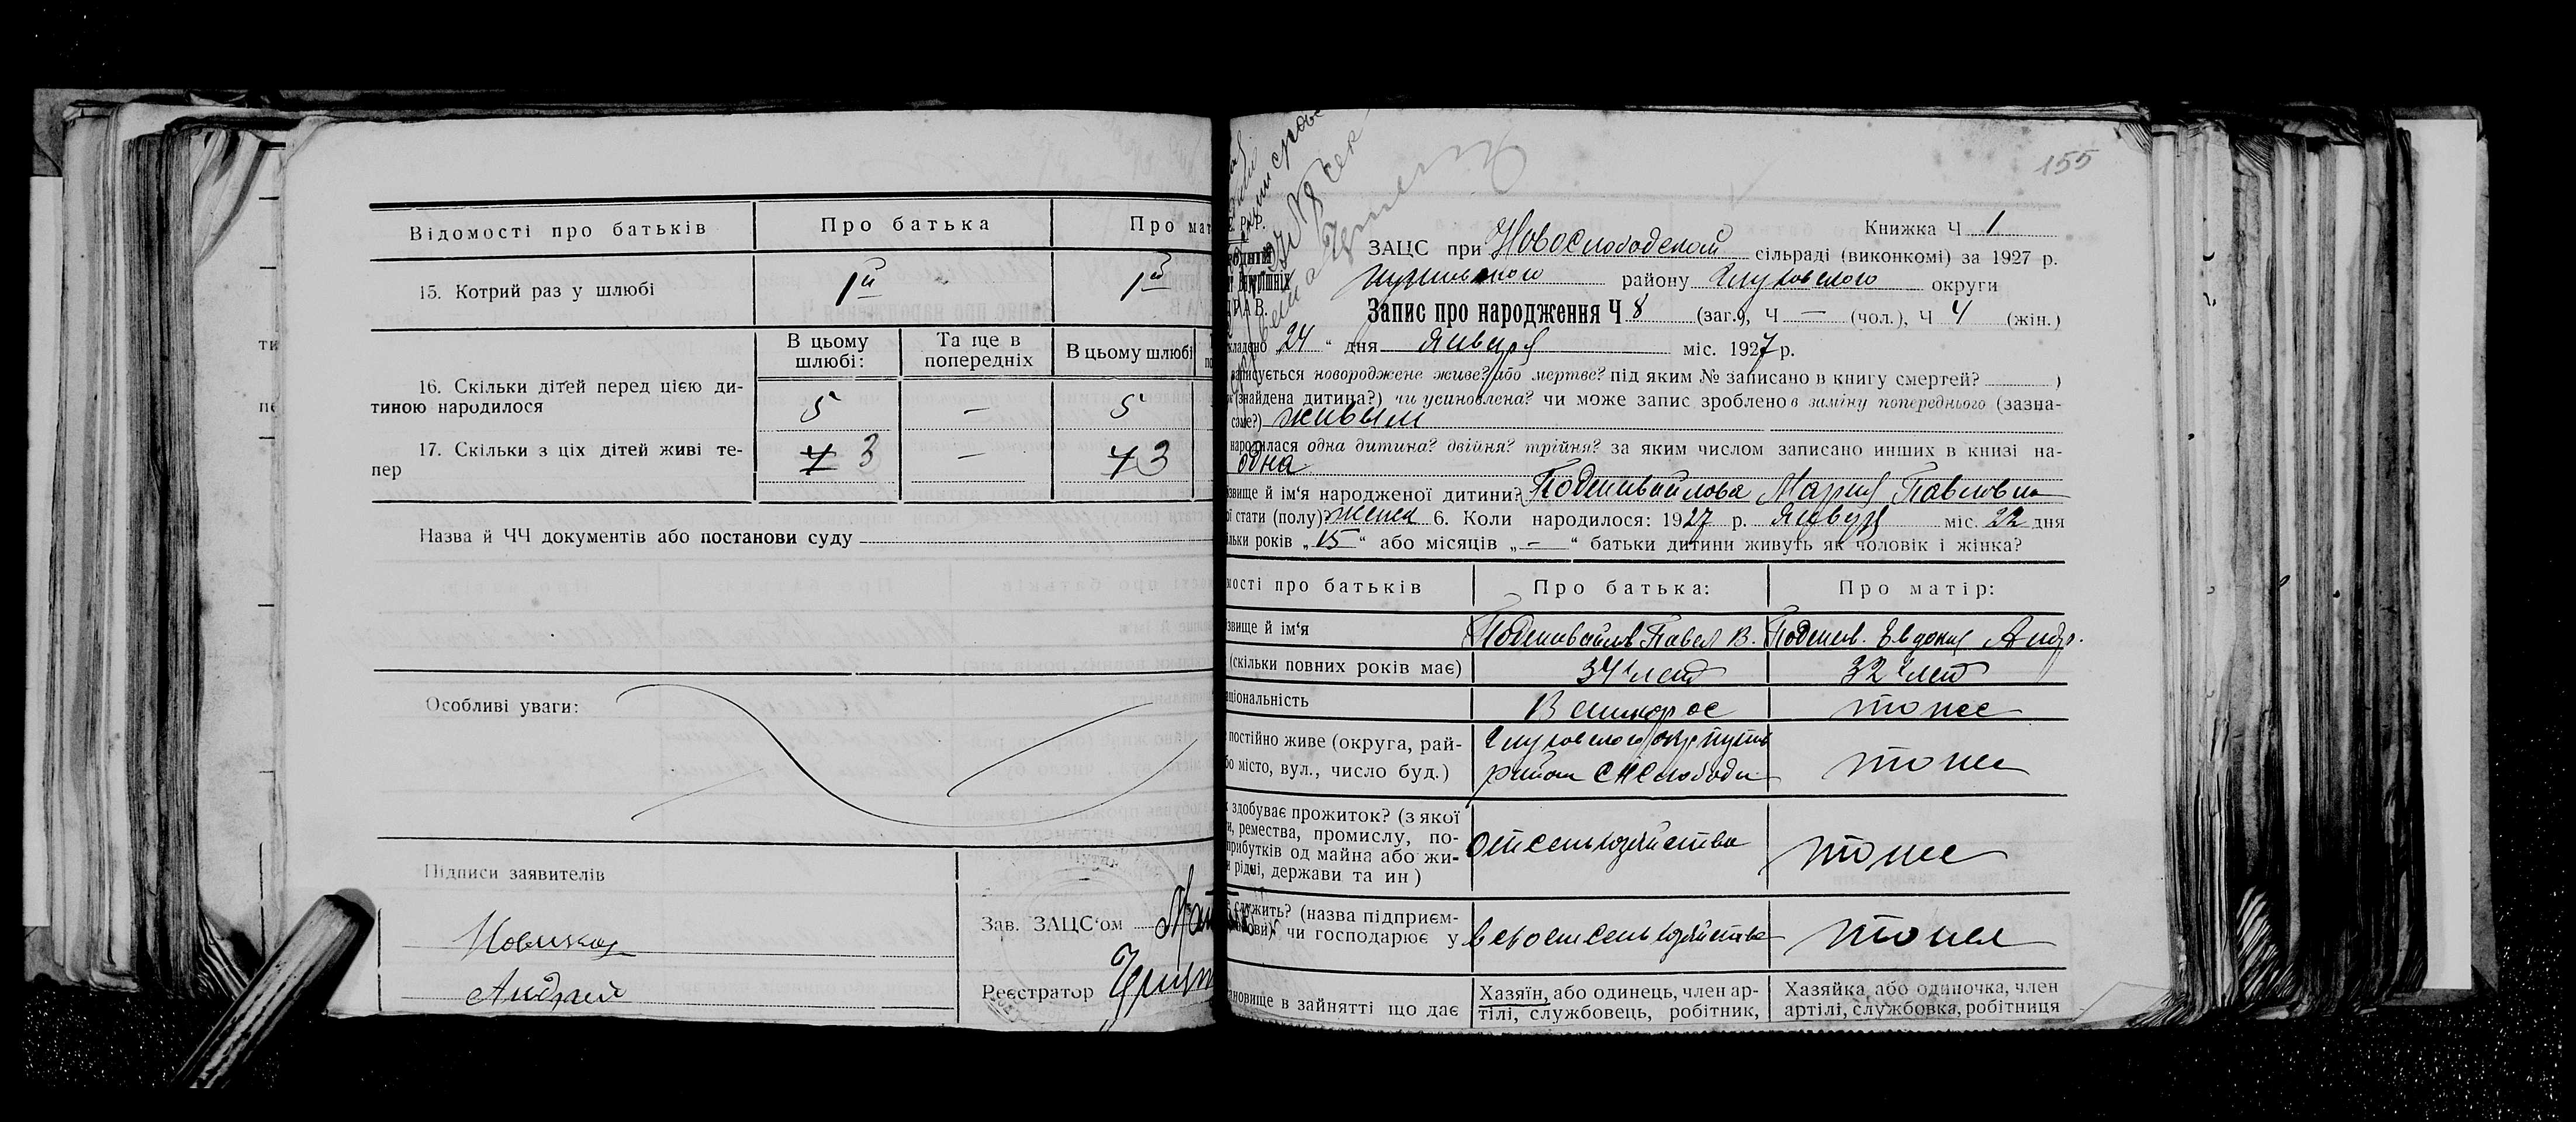 Відомості про батьків
Про батька
Про мат
15. Котрий раз у шлюбі
1й
1й
В цьому шлюбі:
Та ще в попередніх
В цьому шлюбі
16. Скільки дітей перед цією ди-
тиною народилося
5
—
5
17. Скільки з ціх дітей живі те-
пер
4 3
—
4 3
Назва й ЧЧ документів або постанови суду
Особливі уваги:
Підписи заявителів
Новиков
Андрей
Зав. ЗАЦС'ом
Реєстратор
155
Книжка Ч 1
ЗАЦС при Новослободской сільраді (виконкомі) за 1927 р.
району Глуховского округи
Запис про народження Ч 8 (заг.), Ч — (чол.), Ч 4 (жін.)
кладено „24“ дня Января міс. 1927 р.
записується новороджене живе? або мертве? під яким № записано в книгу смертей? )
(знайдена дитина?) чи усиновлена? чи може запис зроблено в заміну попереднього (зазна-
саме?) живым
народилася одна дитина? двійня? трійня? за яким числом записано инших в книзі на-
одна
звище й ім'я народженої дитини? Подшивайлова Мария Павловна
стати (полу)? женск 6. Коли народилося: 1927 р. Января міс. 22 дня
ільки років „15“ або місяців „—“ батьки дитини живуть як чоловік і жінка?
мості про батьків
Про батька:
Про матір:
звище й ім'я
Подшивайлов Павел В.
Подшив. Евдокия Андр.
(скільки повних років має)
34 лет
32 лет
аціональність
Великорос
тоже
постійно живе (округа, рай-
бо місто, вул., число буд.)
Глуховского окр Путив
район С Н Слобода
тоже
здобуває прожиток? (з якої
и, ремества, промислу, по-
прибутків од майна або жи-
и рідні, держави та ин)
От сельхозяйства
тоже
служить? (назва підприєм-
ови) чи господарює у
в своем сельхозяйстве
тоже
ановище в зайнятті що дає
Хазяїн, або одинець, член ар-
тілі, службовець, робітник,
Хазяйка, або одиночка, член
артілі, службовка, робітниця